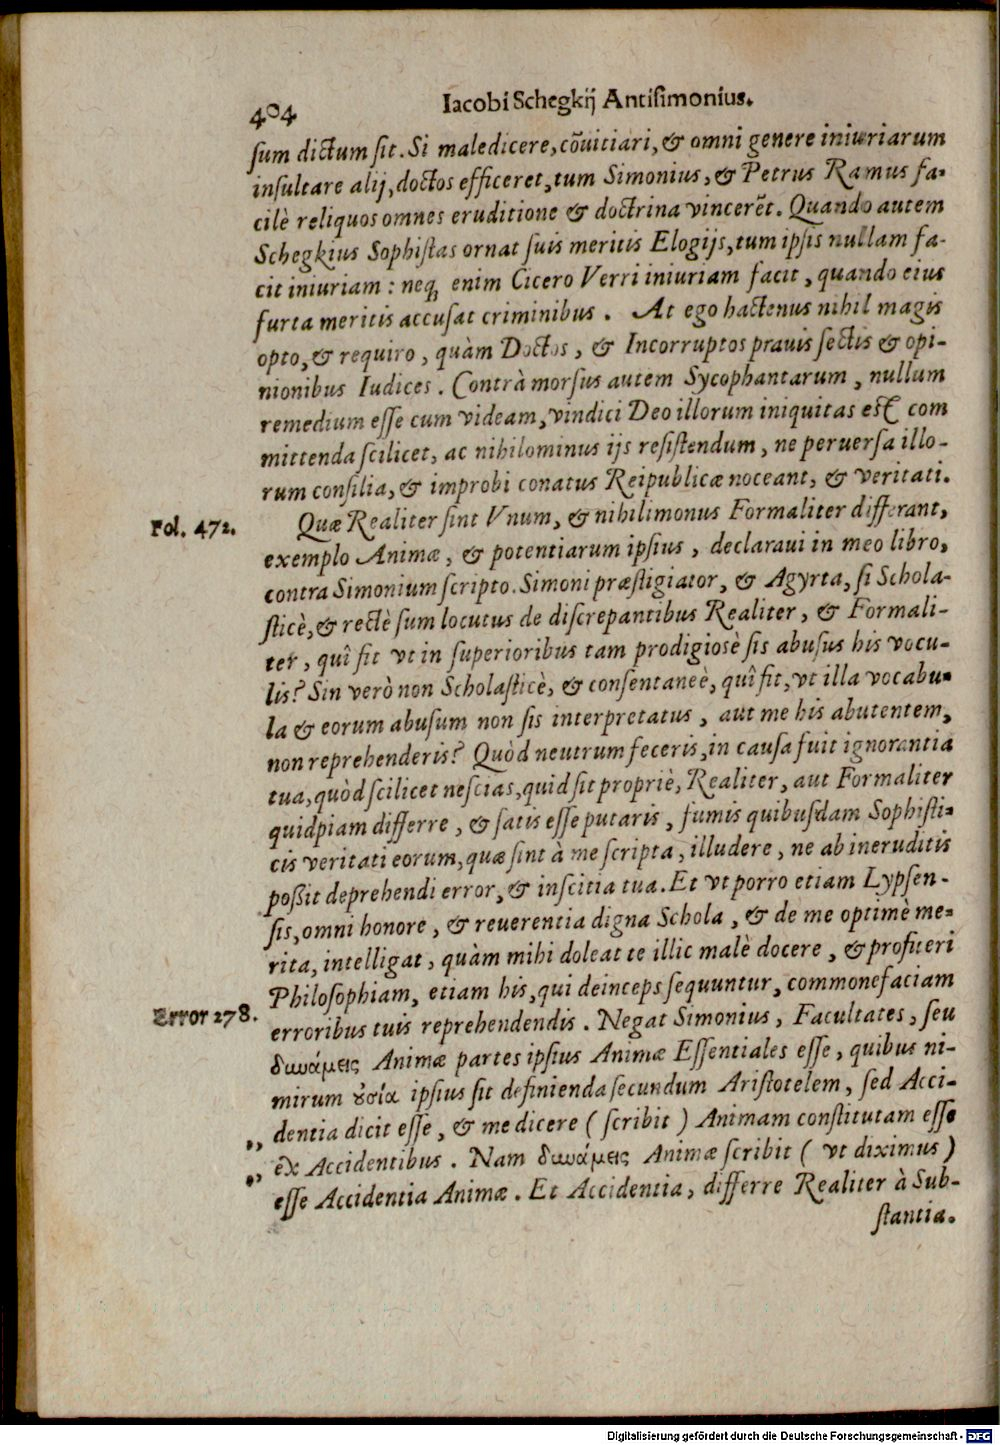 404
Iacobi Schegkij Antisimonius.
sum dictum sit. Si maledicere, cõuitiari, & omni genere iniuriarum
insultare alij, doctos efficeret, tum Simonius, & Petrus Ramus fa-
cilè reliquos omnes eruditione & doctrina vincerẽt. Quando autem
Schegkius Sophistas ornat suis meritis Elogijs, tum ipsis nullam fa-
cit iniuriam: neq; enim Cicero Verri iniuriam facit, quando eius
furta meritis accusat criminibus. At ego hactenus nihil magis
opto, & requiro, quàm Doctos, & Incorruptos prauis sectis & opi-
nionibus Iudices. Contrà morsus autem Sycophantarum, nullum
remedium esse cum videam, vindici Deo illorum iniquitas est com
mittenda scilicet, ac nihilominus ijs resistendum, ne peruersa illo-
rum consilia, & improbi conatus Reipublicæ noceant, & veritati.
Fol. 472.
Quæ Realiter sint Vnum, & nihilimonus Formaliter differant,
exemplo Animæ, & potentiarum ipsius, declaraui in meo libro,
contra Simonium scripto. Simoni præstigiator, & Agyrta, si Schola-
sticè, & rectè sum locutus de discrepantibus Realiter, & Formali-
ter, quî fit vt in superioribus tam prodigiosè sis abusus his vocu-
lis? Sin verò non Scholasticè, & consentaneè, quî fit, vt illa vocabu-
la & eorum abusum non sis interpretatus, aut me his abutentem,
non reprehenderis? Quòd neutrum feceris, in causa fuit ignorantia
tua, quòd scilicet nescias, quid sit propriè, Realiter, aut Formaliter
quidpiam differre, & satis esse putaris, fumis quibusdam Sophisti-
cis veritati eorum, quæ sint à me scripta, illudere, ne ab ineruditis
possit deprehendi error, & inscitia tua. Et vt porro etiam Lypsen-
sis, omni honore, & reuerentia digna Schola, & de me optimè me-
rita, intelligat, quàm mihi doleat te illic malè docere, & profiteri
Philosophiam, etiam his, qui deinceps sequuntur, commonefaciam
Error 278.
erroribus tuis reprehendendis. Negat Simonius, Facultates, seu
δυνάμεις Animæ partes ipsius Animæ Essentiales esse, quibus ni-
mirum ȣσία ipsius sit definienda secundum Aristotelem, sed Acci-
dentia dicit esse, & me dicere ( scribit ) Animam constitutam esse
„ ex Accidentibus. Nam δυνάμεις Animæ scribit ( vt diximus )
„ esse Accidentia Animæ. Et Accidentia, differre Realiter à Sub-
stantia.
Digitalisierung gefördert durch die Deutsche Forschungsgemeinschaft - DFG